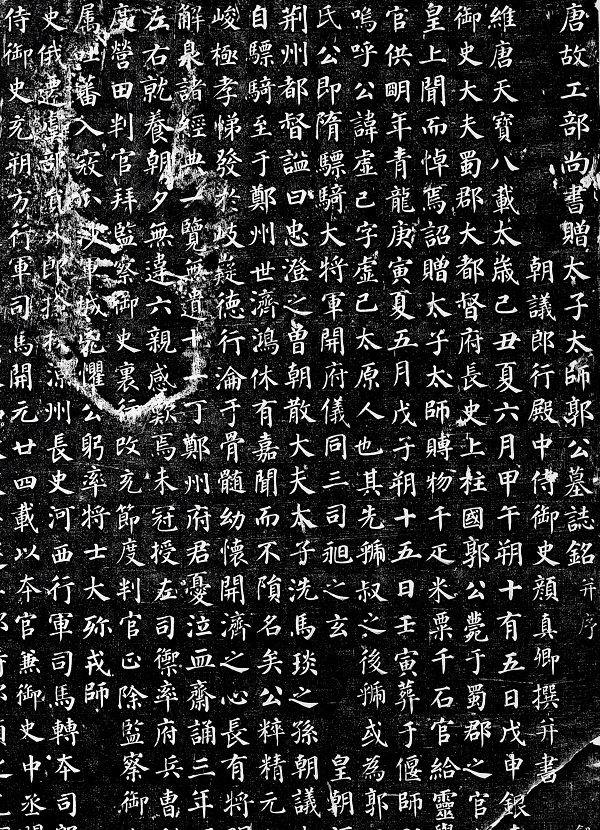 唐故工部尚書贈太子太師郭公墓誌銘并序
朝議郎行殿中侍御史顔真卿撰并書
維唐天寶八載太歳己丑夏六月甲午朔十有五日戊申銀
御史大夫蜀郡大都督府長史上柱國郭公薨于蜀郡之官
皇上聞而悼焉詔贈太子太師賻物千疋米粟千石官給靈轝
官供眀年青龍庚寅夏五月戊子朔十五日壬寅葬于偃師
嗚呼公諱虛己字虛己太原人也其先虢叔之後虢或為郭
氏公即隋驃騎大將軍開府儀同三司昶之玄
荆州都督謚曰忠澄之曽朝散大夫太子洗馬琰之孫朝議
自驃騎至于鄭州世濟鴻休有嘉聞而不隕名矣公粹精元
峻極孝悌發於岐嶷德行淪于骨髓幼懷開濟之心長有將
解泉諸經典一覽無遺十一丁鄭州府君憂泣血齋誦三年
左右就養朝夕無違六親感歎焉未冠授左司禦率府兵曹
度營田判官拜監察御史裏行改充節度判官正除監察御
属吐蕃入寇瓜沙軍城兇懼公躬率將士大殄戎師
史俄遷虞部員外郎檢校涼州長史河西行軍司馬轉本司
侍御史充朔方行軍司馬開元廿四載以本官兼御史中丞